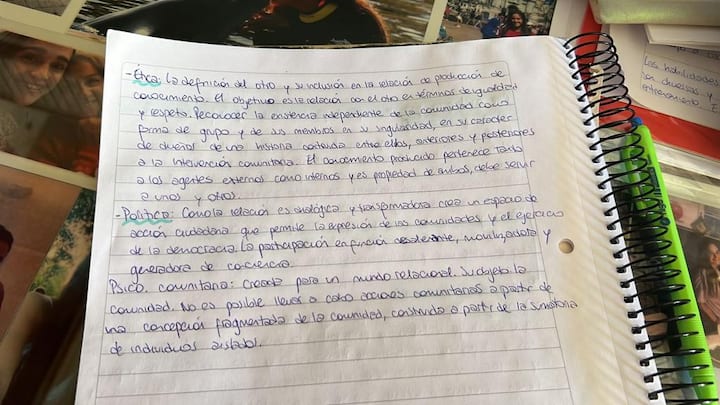 - Ética: La definición del otro y su inclusión en la relación de producción de
conocimiento. El objetivo es la relación con el otro en términos de igualdad
y respeto. Reconocer la existencia independiente de la comunidad como
forma de grupo y de sus miembros en su singularidad, en su carácter
de dueños de una historia contruida entre ellos, anteriores y posteriores
a la intervención comunitaria. El conocimiento producido pertenece tanto
a los agentes externos como internos y es propiedad de ambos, debe servir
a unos y otros.
- Política: Como la relación es dialógica y transformadora crea un espacio de
acción ciudadana que permite la expresión de las comunidades y el ejercicio
de la democracia. La participación en función , movilizadora y
generadora de conciencia.
Psico. comunitaria: Creada para un mundo relacional. Su objeto: la
comunidad. No es posible llevar a cabo acciones comunitarias a partir de
una concepción fragmentada de la comunidad, construida a partir de la sumatoria
de individuos aislados.
Las habilidades
son duelas y
entrenamiento